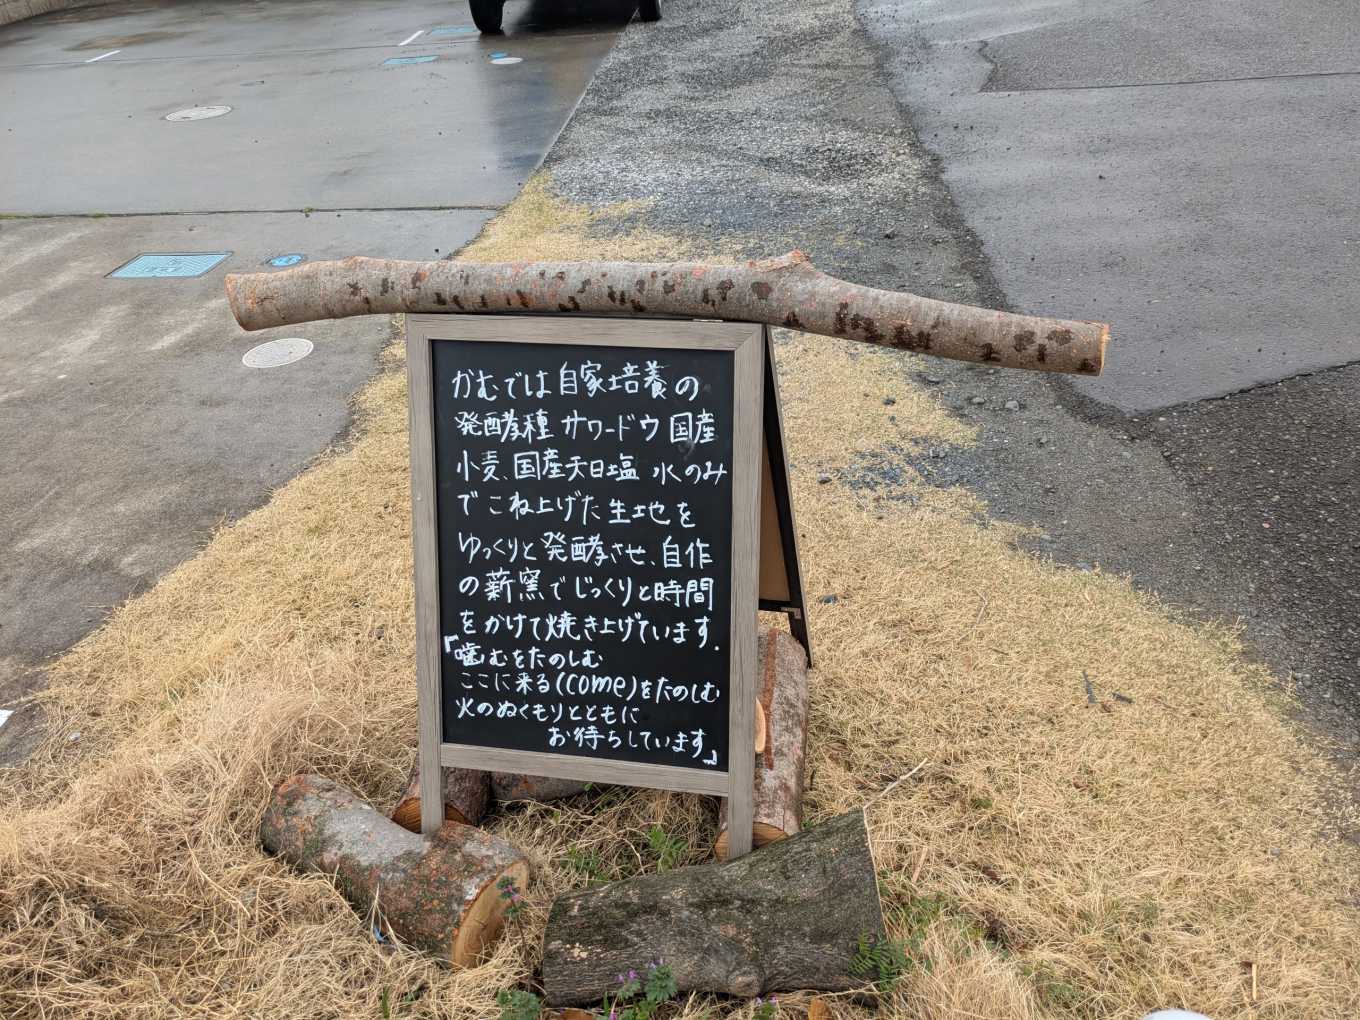 かむでは自家培養の
発酵種サワードウ国産
小麦、国産天日塩 水のみ
でこね上げた生地を
ゆっくりと発酵させ、自作
の薪窯でじっくりと時間
をかけて焼き上げています.
「噛むをたのしむ
ここに来る(come)をたのしむ
火のぬくもりとともに
お待ちしています」